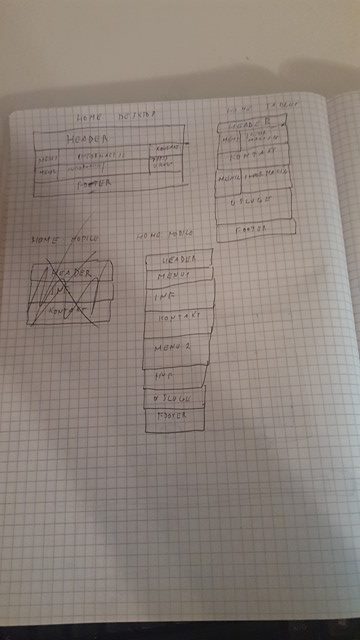 HOME DESKTOP
HEADER
MENU INFORMACIJE KONTAKT
MENU
FOOTER
HOME TABLET
HEADER
MENU
KONTAKT
MENU INFORMACIJE
USLUGE
FOOTER
HOME MOBILE
HEADER
INF
KONTAKT
HOME MOBILE
HEADER
MENU 1
INF
KONTAKT
MENU 2
INF
USLUGE
FOOTER